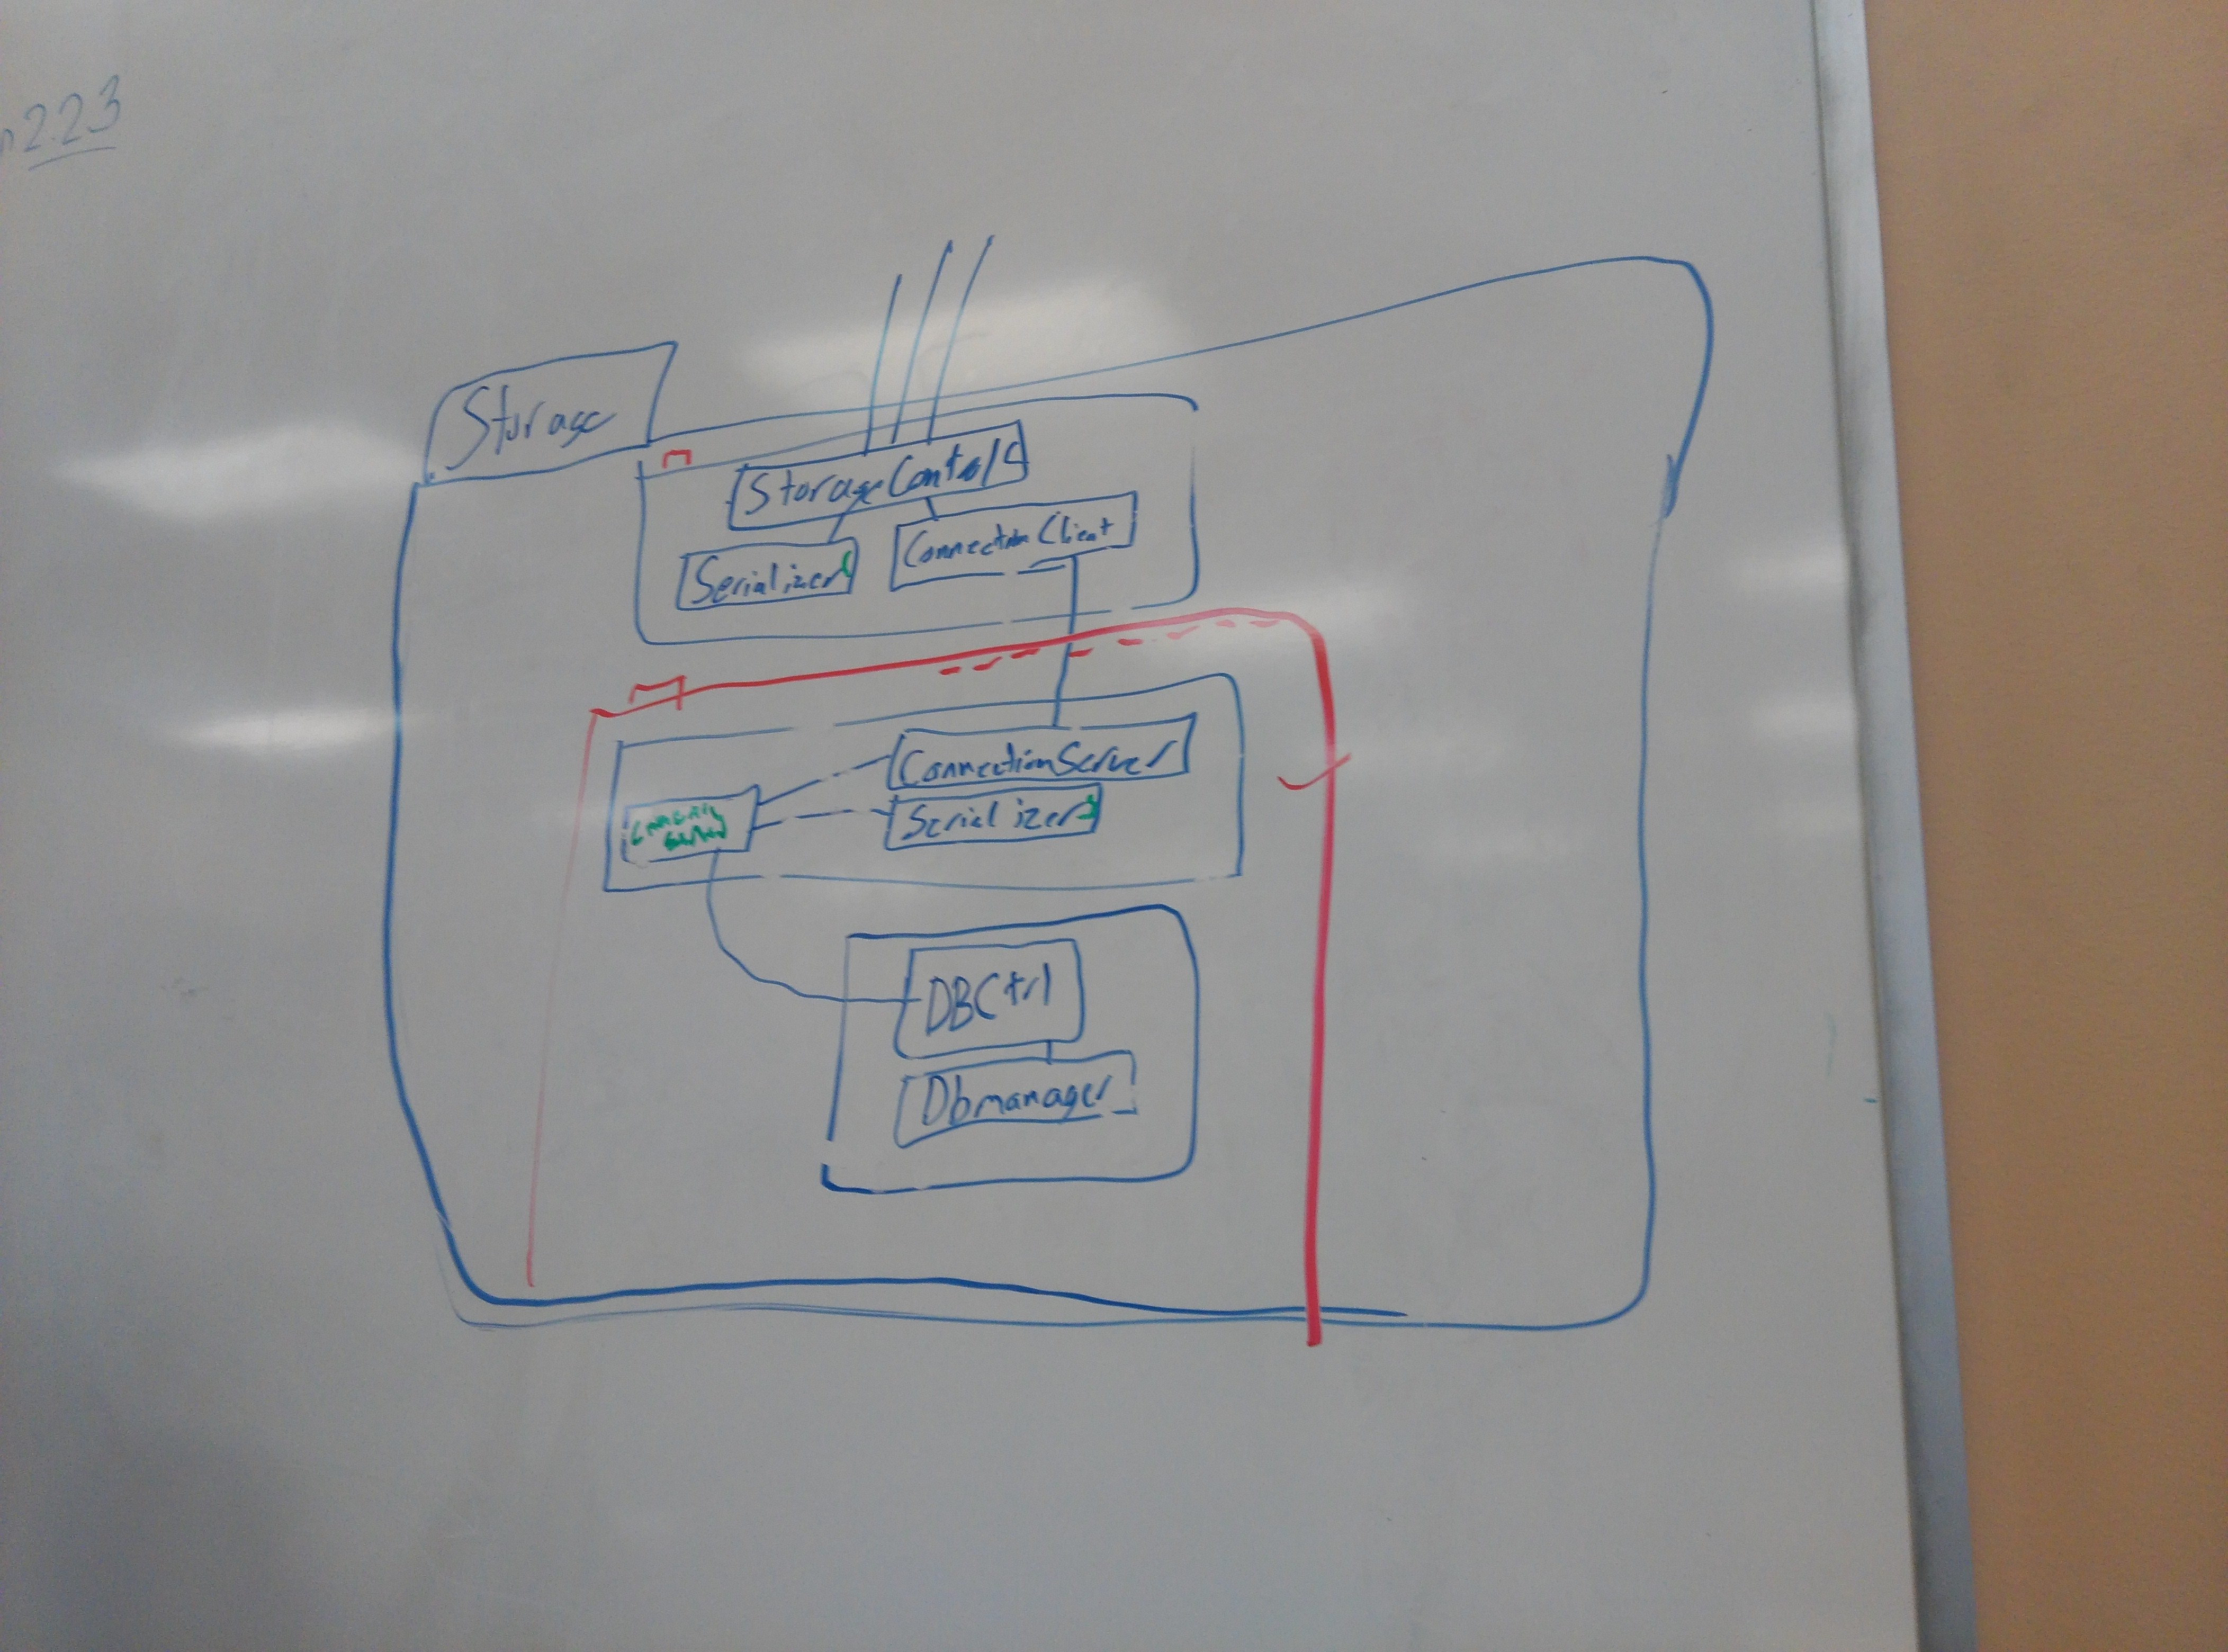 223
Storage
StorageControl
Serializer
ConnectionClient
ConnectionServer
Serializer
DBCtrl
Dbmanager